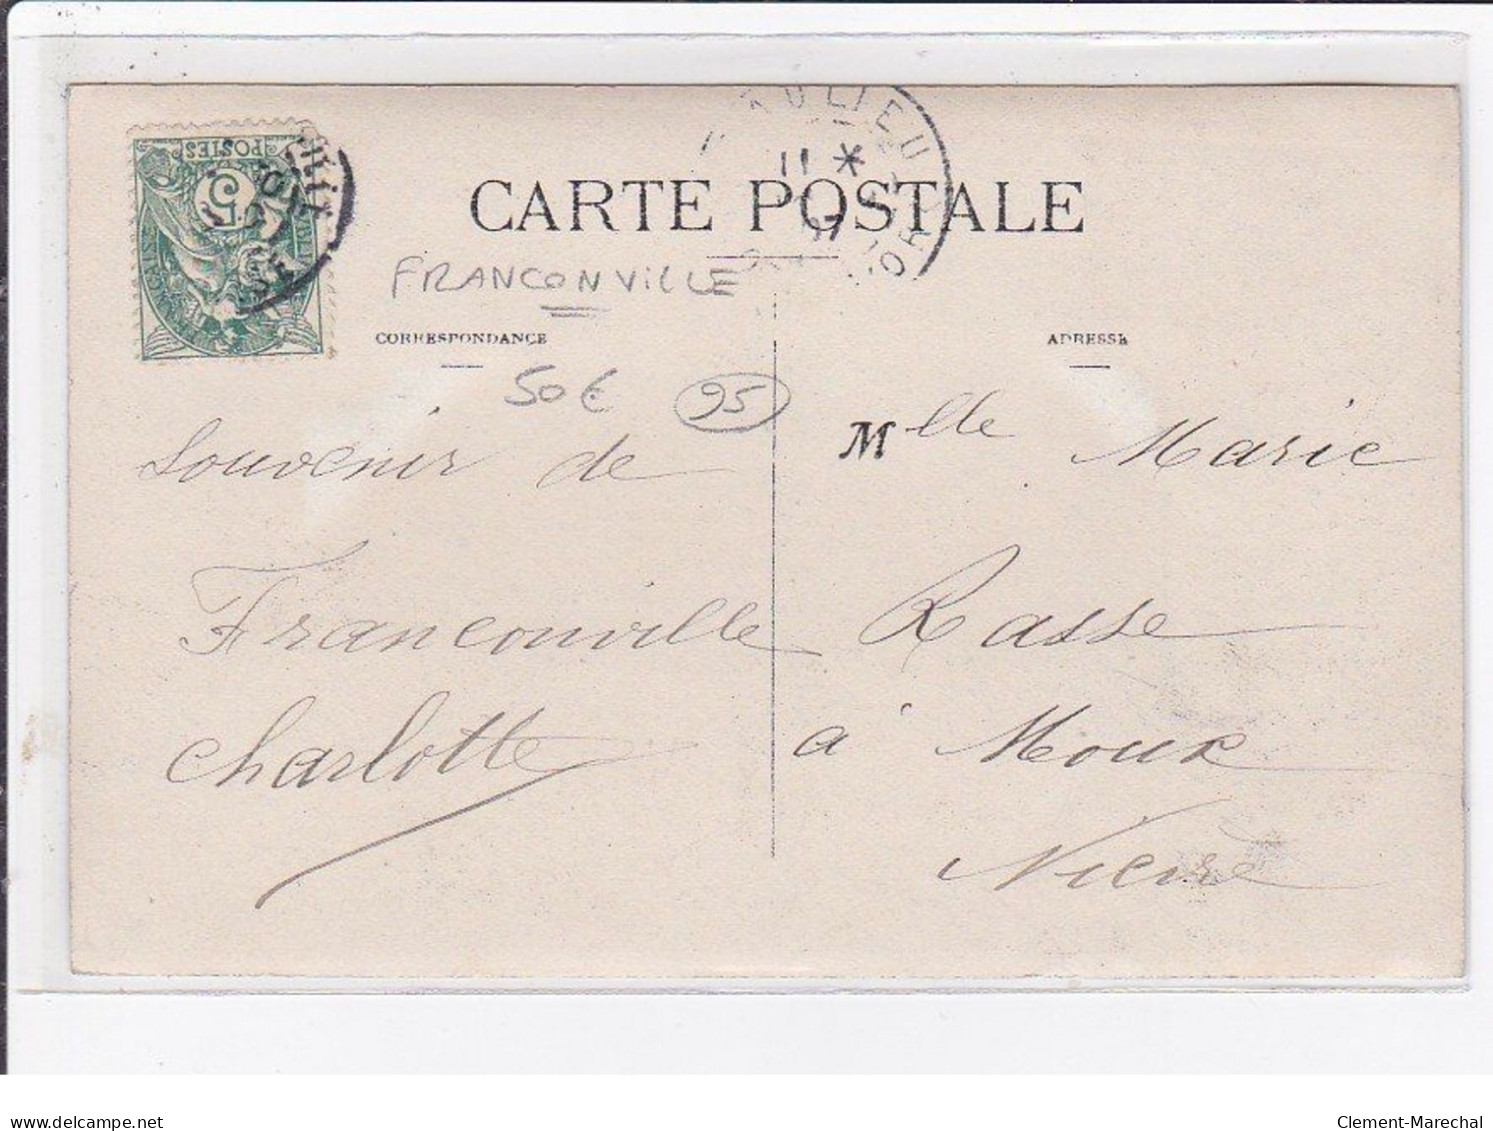 POSTES
5
CARTE POSTALE
11 *
FRANCONVILLE
CORRESPONDANCE
ADRESSE
50€
95
Souvenir de
Franconville
Charlotte
Mlle Marie
Rasse
à Moux
Nièvre
delcampe.net
Clement-Marechal